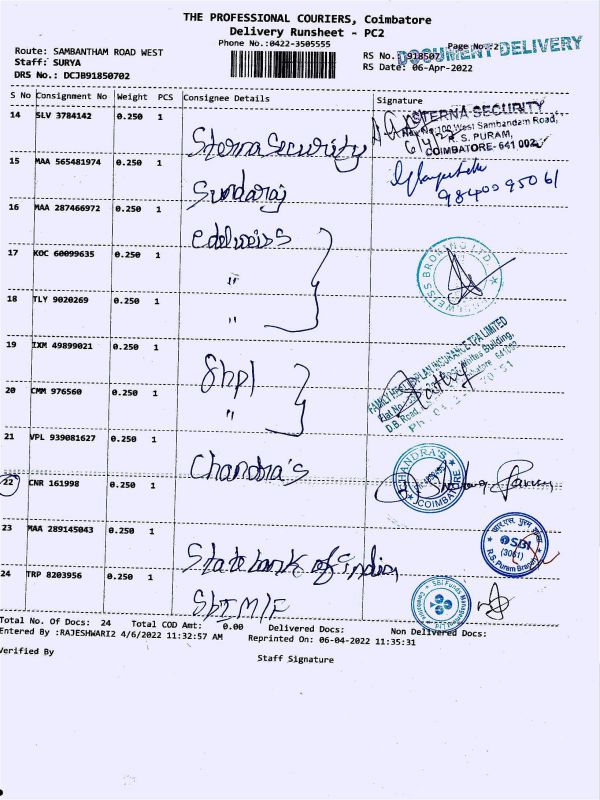 THE PROFESSIONAL COURIERS, Coimbatore
Delivery Runsheet - PC2
Phone No.:0422-3505555
Page No.:2
DOCUMENT DELIVERY
Route: SAMBANTHAM ROAD WEST
Staff: SURYA
DRS No.: DCJB91850702
RS No.: 918507
RS Date: 06-Apr-2022
S No Consignment No Weight PCS Consignee Details Signature
14 SLV 3784142 0.250 1 Sterna Security
STERNA SECURITY
New No:100 West Sambandam Road,
R. S. PURAM,
COIMBATORE- 641 002
6/4/22
15 MAA 565481974 0.250 1 Sundaraj
9840095061
16 MAA 287466972 0.250 1 edelweiss
17 KOC 60099635 0.250 1 "
EDELWEISS BROKING LTD.
18 TLY 9020269 0.250 1 "
19 IXM 49899021 0.250 1 Shpl
FAMILY HEALTH PLAN INSURANCE TPA LIMITED
20 CMM 976560 0.250 1 "
D.B. Road,
21 VPL 939081627 0.250 1 Chandra's
CHANDRA'S
COIMBATORE
22 CNR 161998 0.250 1
23 MAA 289145043 0.250 1 State bank of india
SBI
(3061)
R.S. Puram Branch
24 TRP 8203956 0.250 1 SbIM/F
SBI Funds
Total No. Of Docs: 24 Total COD Amt: 0.00 Delivered Docs: Non Delivered Docs:
Entered By :RAJESHWARI2 4/6/2022 11:32:57 AM Reprinted On: 06-04-2022 11:35:31
Verified By
Staff Signature